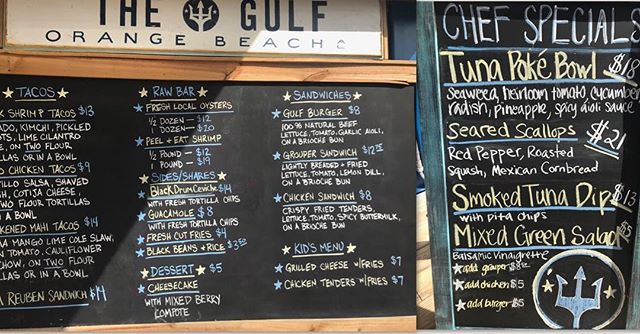 THE GULF
ORANGE BEACH
TACOS
SHRIMP TACOS $13
KIMCHI, PICKLED
LIME CILANTRO
ON TWO FLOUR
OR IN A BOWL
CHICKEN TACOS $9
SALSA, SHAVED
COTIJA CHEESE,
TWO FLOUR TORTILLAS
A BOWL
MAHI TACOS $14
MANGO LIME COLE SLAW,
TOMATO, CAULIFLOWER
CHOW, ON TWO FLOUR
OR IN A BOWL
REUBEN SANDWICH $14
RAW BAR
FRESH LOCAL OYSTERS
1/2 DOZEN - $12
1 DOZEN - $20
PEEL + EAT SHRIMP
1/2 POUND - $12
1 POUND - $19
SIDES/SHARES
Black Drum Ceviche $14
WITH FRESH TORTILLA CHIPS
GUACAMOLE $8
WITH FRESH TORTILLA CHIPS
FRESH CUT FRIES $4
BLACK BEANS + RICE $3.50
DESSERT $5
CHEESECAKE
WITH MIXED BERRY
COMPOTE
SANDWICHES
GULF BURGER $8
100% NATURAL BEEF
LETTUCE, TOMATO, GARLIC AIOLI,
ON A BRIOCHE BUN
GROUPER SANDWICH
LIGHTLY BREADED + FRIED
LETTUCE, TOMATO, LEMON DILL,
ON A BRIOCHE BUN
CHICKEN SANDWICH $8
CRISPY FRIED TENDERS,
LETTUCE, TOMATO, SPICY BUTTERMILK,
ON A BRIOCHE BUN
KID'S MENU
GRILLED CHEESE W/FRIES $7
CHICKEN TENDERS W/FRIES $7
CHEF SPECIALS
Tuna Poké Bowl $18
Seaweed, heirloom tomato, cucumber
radish, pineapple, spicy aioli sauce
Seared Scallops $21
Red Pepper, Roasted
Squash, Mexican Cornbread
Smoked Tuna Dip $13
with pita chips
Mixed Green Salad
Balsamic Vinaigrette
add grouper
add chicken $5
add burger $5